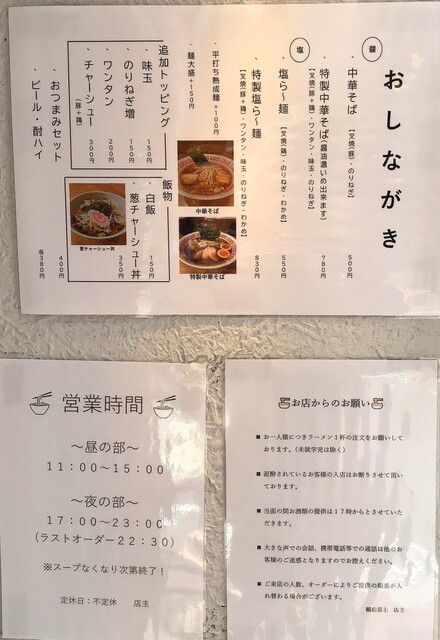 おしながき
醤
中華そば 【叉焼(豚)・のりねぎ】 500円
特製中華そば(醤油濃いめ出来ます) 【叉焼(豚+鶏)・ワンタン・味玉・のりねぎ】 780円
塩
塩ら〜麺 【叉焼(鶏)・のりねぎ・わかめ】 550円
特製塩ら〜麺 【叉焼(豚+鶏)・ワンタン・味玉・のりねぎ・わかめ】 830円
・平打ち熟成麺+100円
・麺大盛+150円
中華そば
特製中華そば
追加トッピング
・味玉 150円
・のりねぎ増 150円
・ワンタン 200円
・チャーシュー (豚+鶏) 300円
飯物
・白飯 150円
・葱チャーシュー丼 350円
葱チャーシュー丼
・おつまみセット 400円
・ビール・酎ハイ 各380円
営業時間
〜昼の部〜
11:00〜15:00
〜夜の部〜
17:00〜23:00
(ラストオーダー22:30)
※スープなくなり次第終了!
定休日:不定休 店主
お店からのお願い
■お一人様につきラーメン1杯の注文をお願いして
おります。(未就学児は除く)
■泥酔されているお客様の入店はお断りさせて頂い
ております。
■当面の間お酒類の提供は17時からとさせていた
だきます。
■大きな声での会話、携帯電話等での通話は他のお
客様のご迷惑となりますのでお控えください。
■ご来店の人数、オーダーによりご提供の順番が入
れ替わる場合がございます。
店主